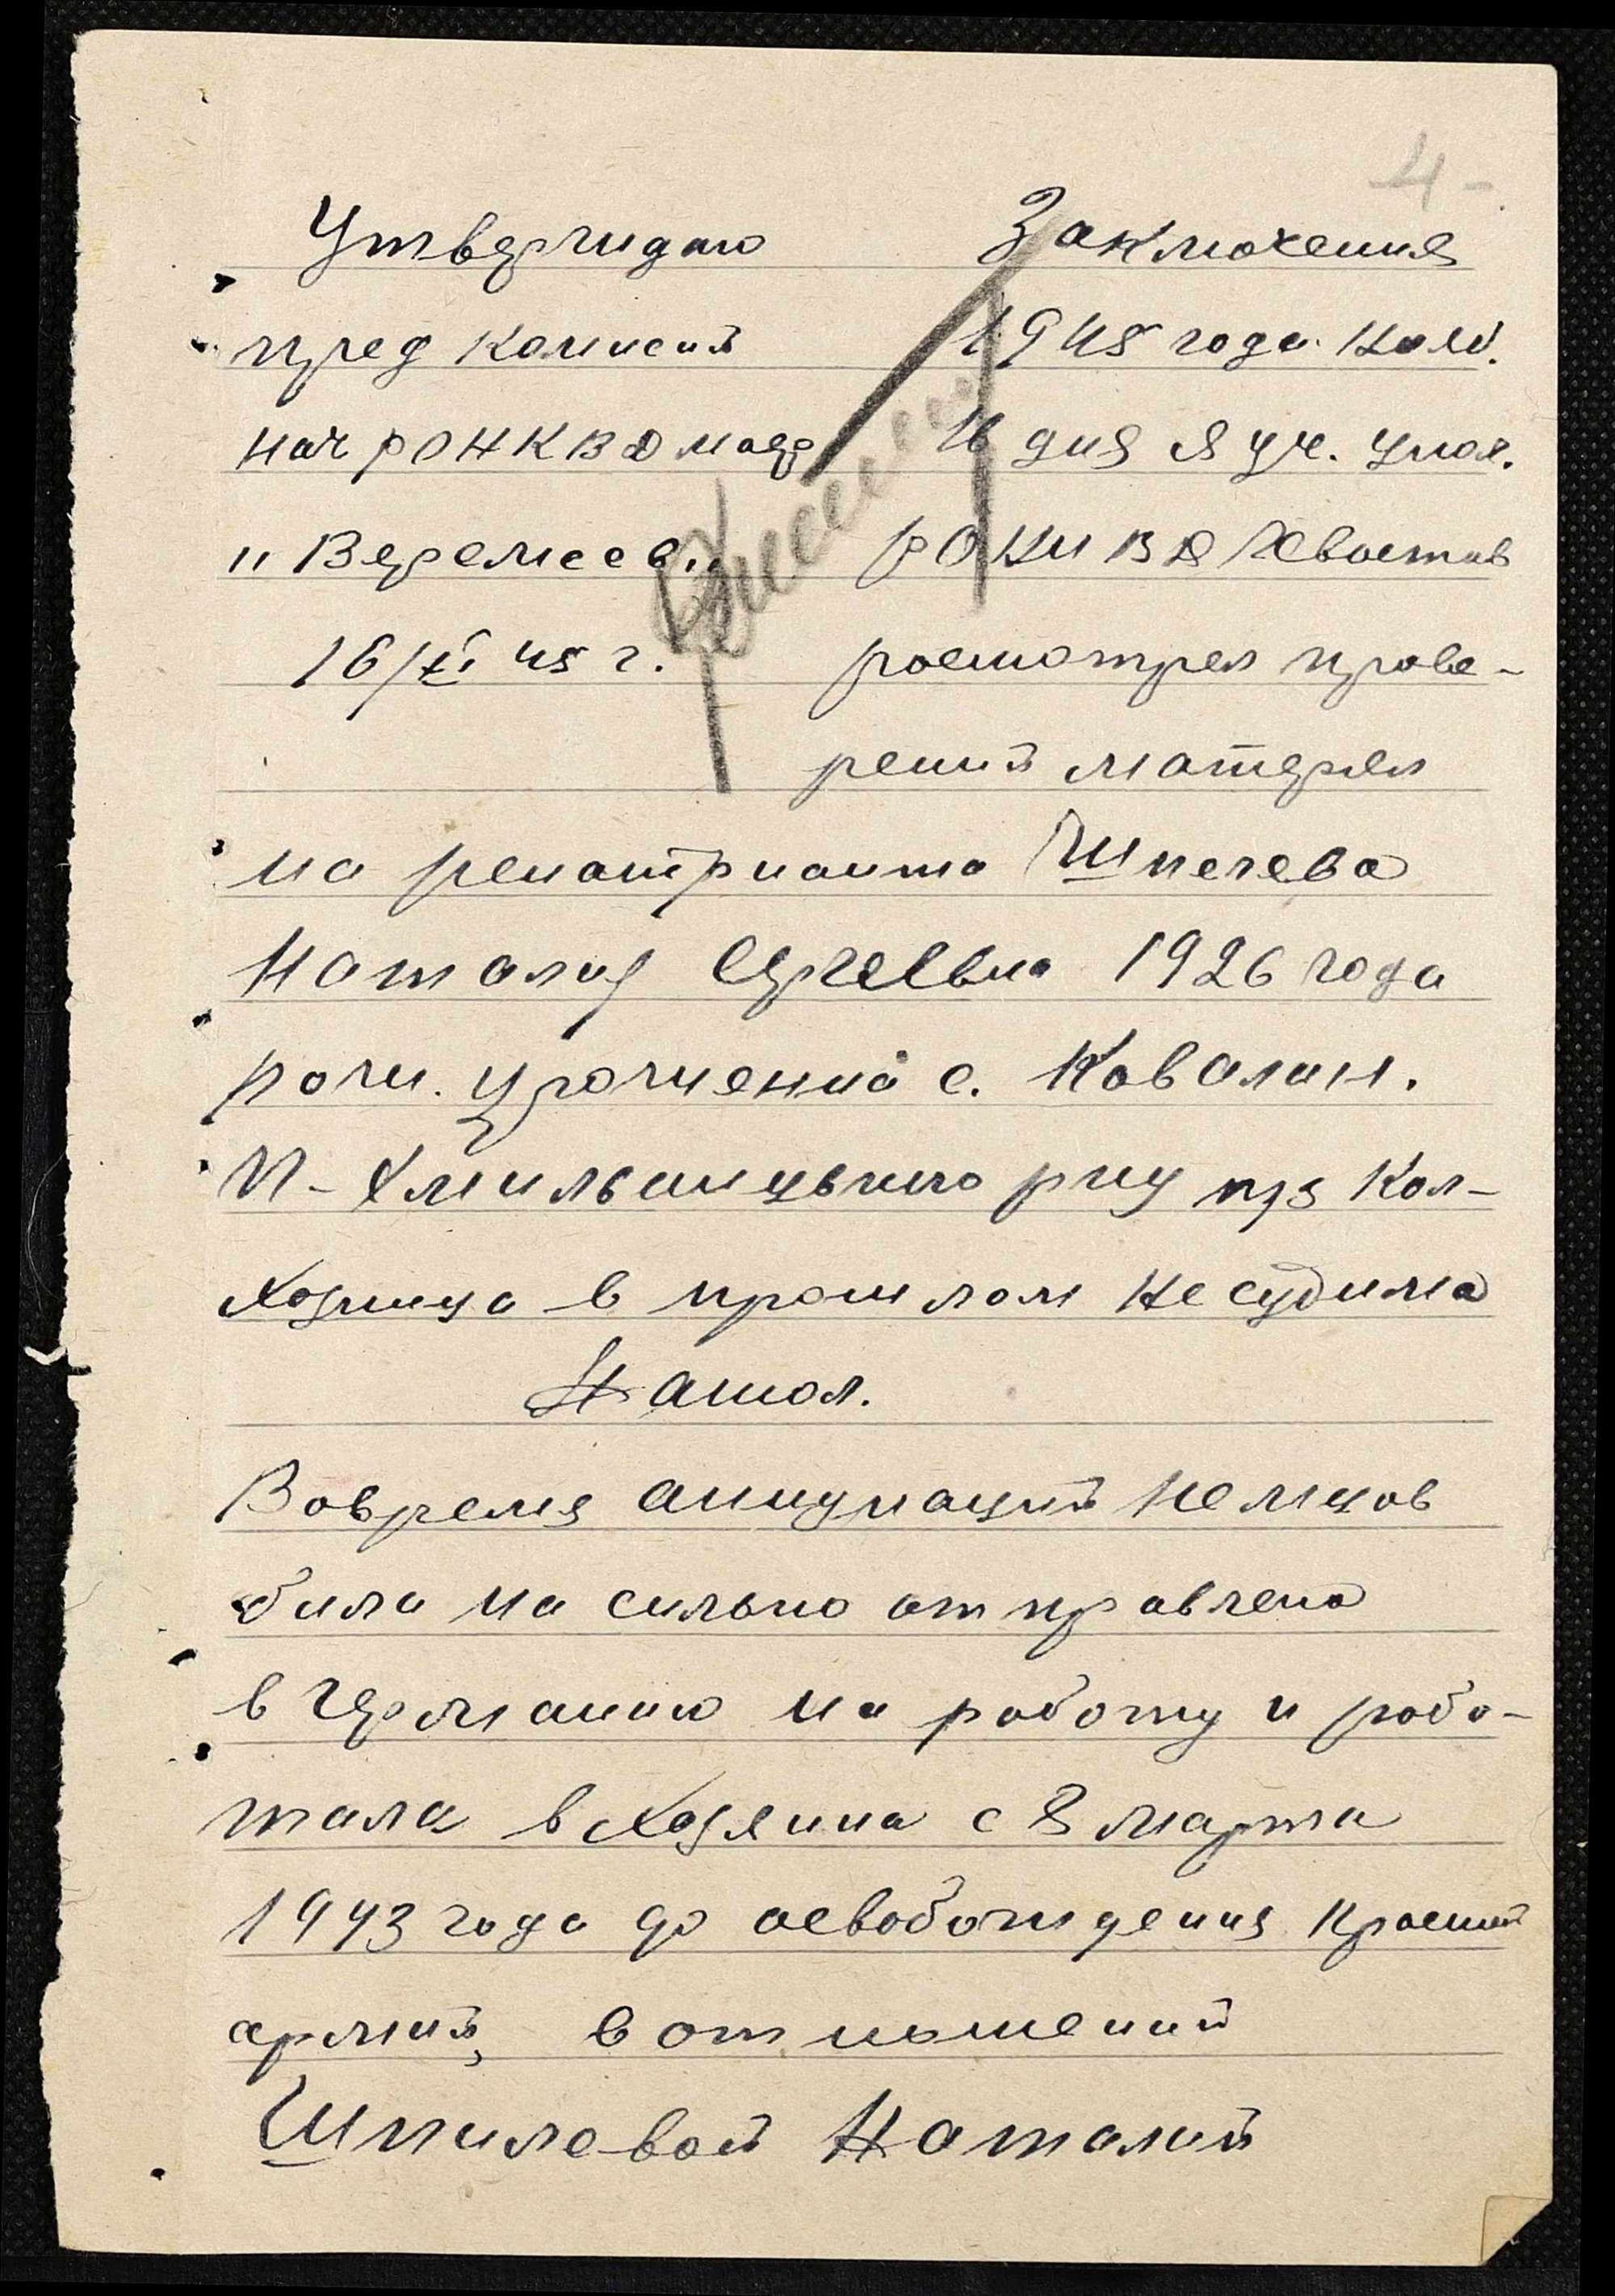 4-
Утвержидаю
пред комисий
нач РОНКВД маяр
" Веремеев.
16/XI 45 г.
Заключения
1945 года нояб.
16 дня я уч. упол.
РОНКВД Хвостов
росмотрел прове-
рений матерял
на репатрианта Шпегева
Наталия Сергеевна 1926 года
рожи. урожиенна с. Ковалин.
П-Хмильницького р-ну пр. кол-
хозница в прошлом не судима
Нашол.
Вовремя аккупаций немцов
била на сильно отправлена
в Германию на работу и рабо-
тала в хозяина с 8 марта
1943 года до освобожидения красний
армий, в отношений
Шпилевой Наталий